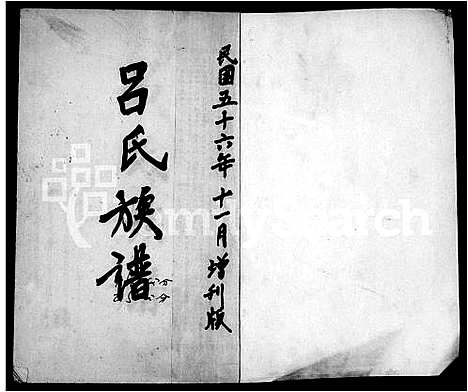 民国五十六年十一月增刊版
呂氏族譜
FamilySearch